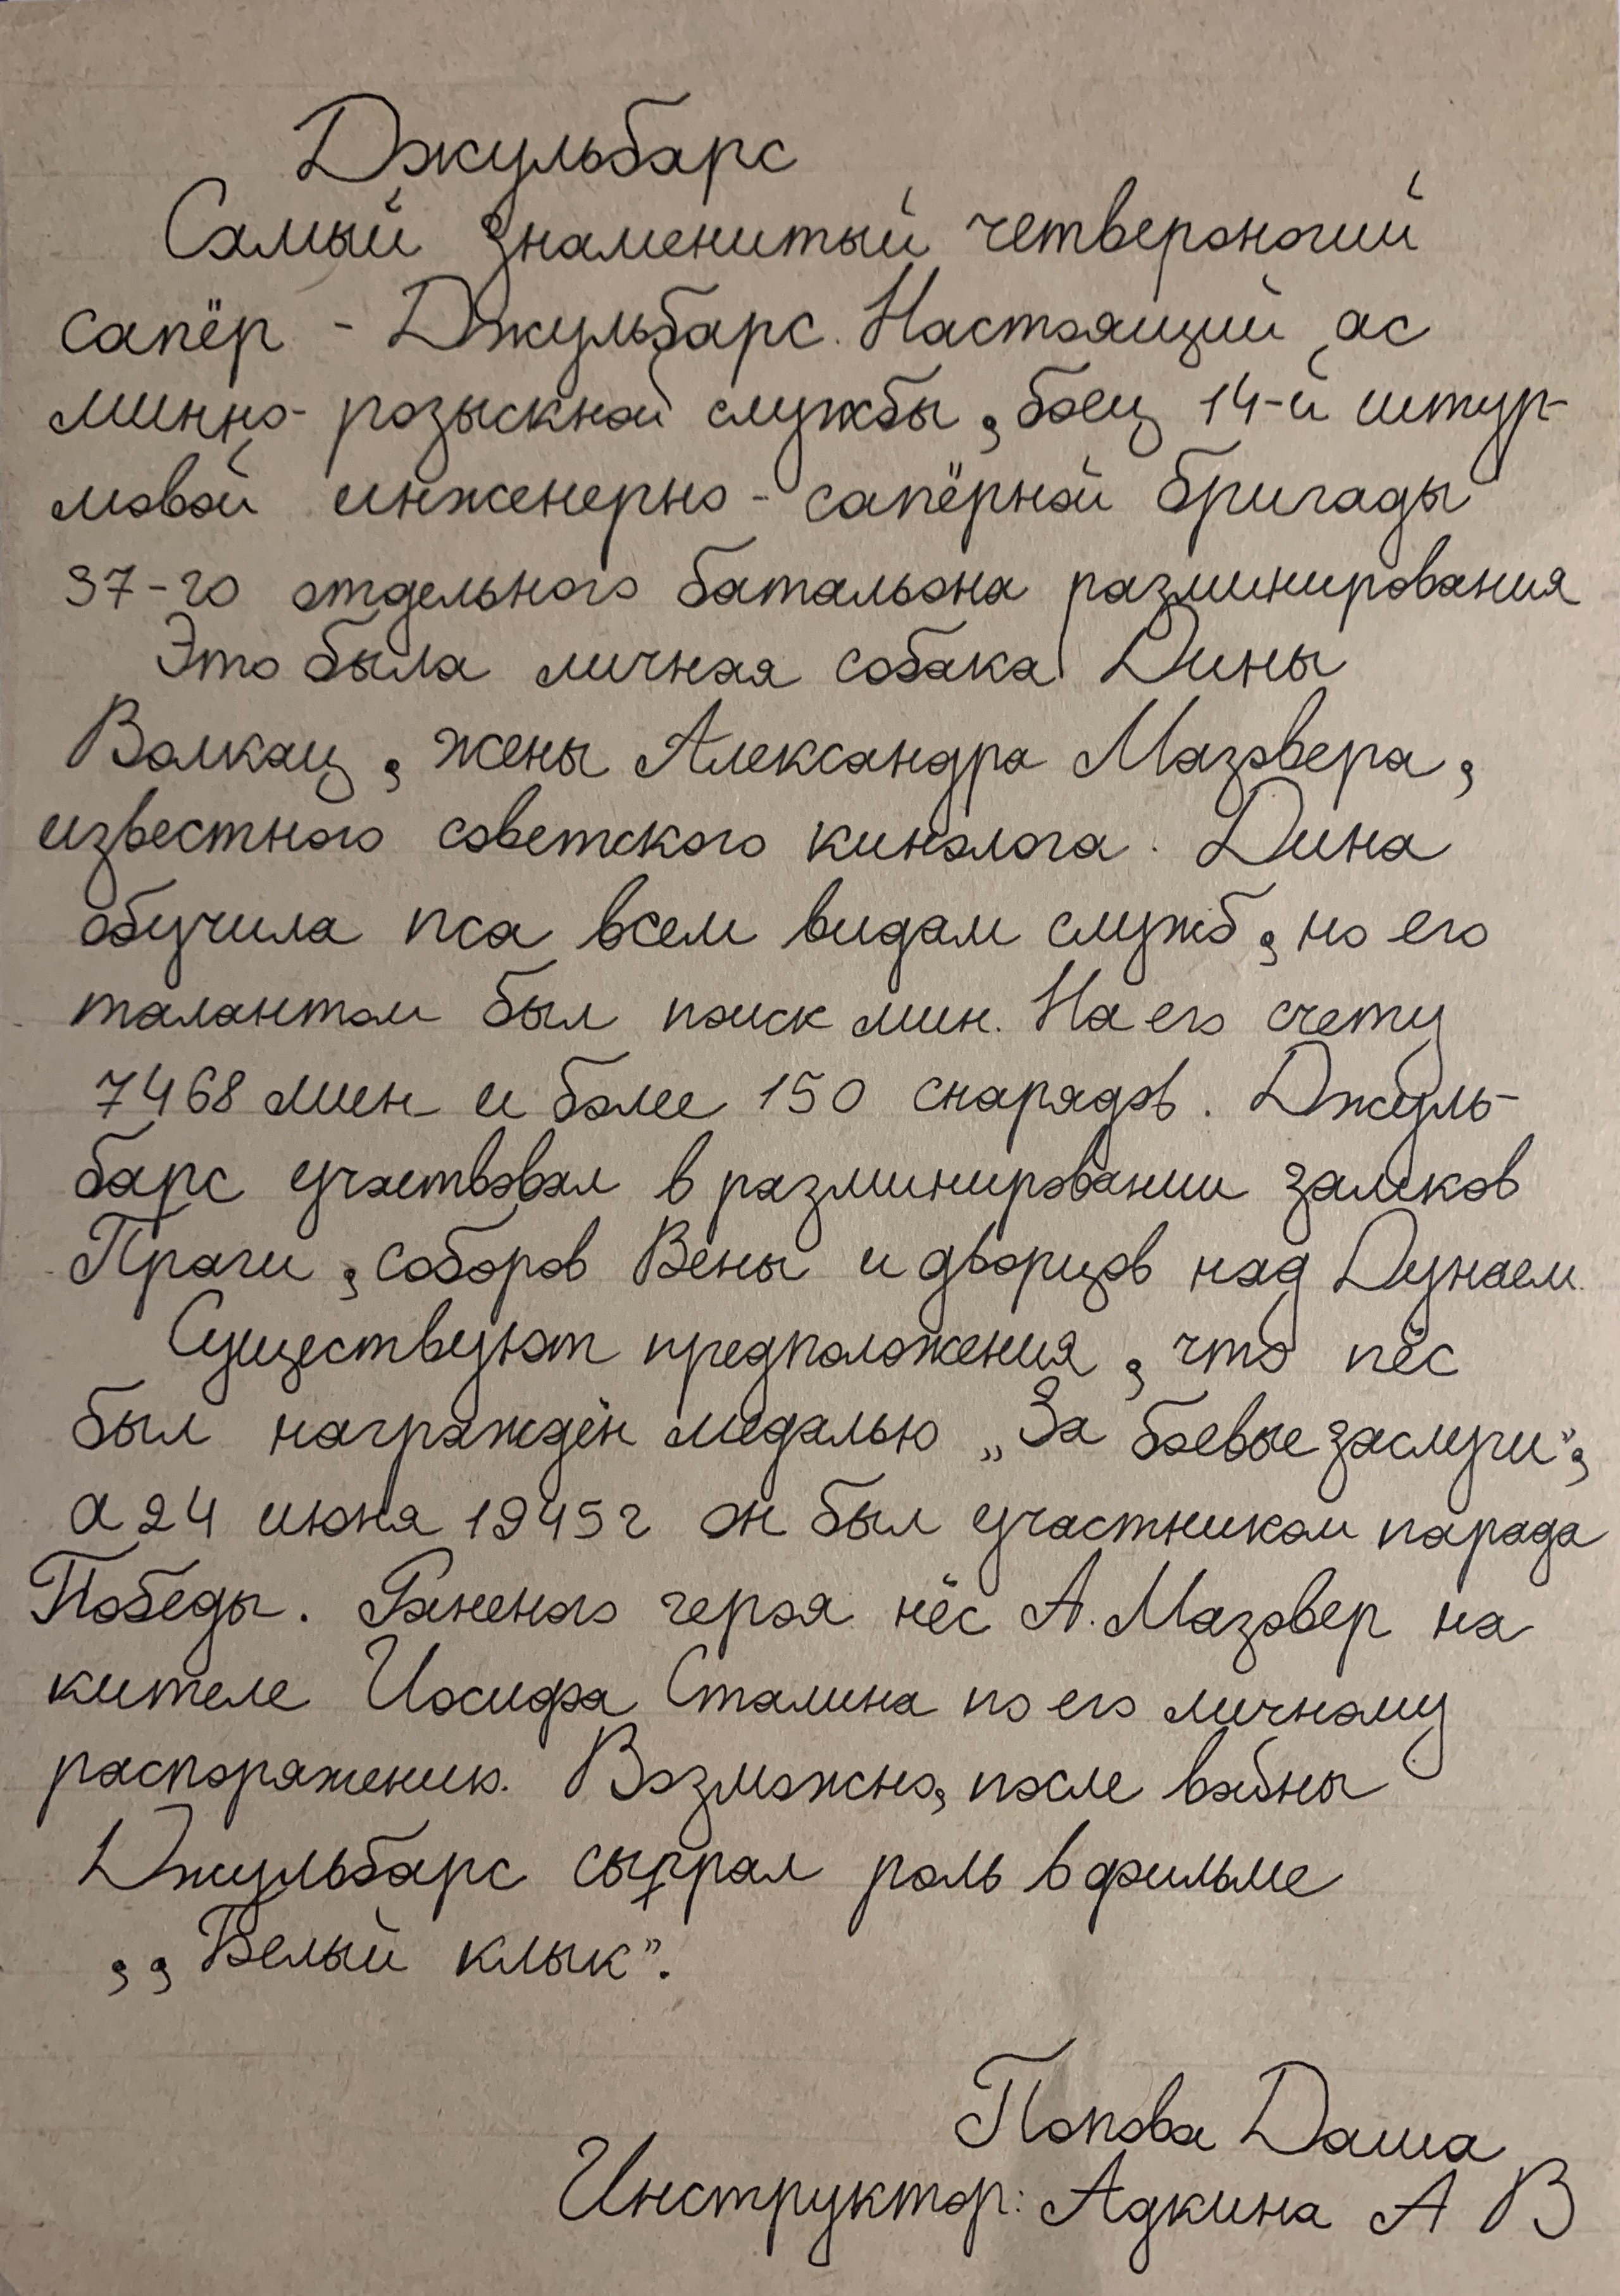 Джульбарс
Самый знаменитый четвероногий
сапёр - Джульбарс. Настоящий ас
минно- розыскной службы, боец 14-й штур-
мовой инженерно - сапёрной бригады
37-го отдельного батальона разминирования
Это была личная собака Дины
Волкац, жены Александра Мазовера,
известного советского кинолога. Дина
обучила пса всем видам служб, но его
талантом был поиск мин. На его счету
7468 мин и более 150 снарядов. Джуль-
барс участвовал в разминировании замков
Праги, соборов Вены и дворцов над Дунаем.
Существуют предположения, что пёс
был награждён медалью „За боевые заслуги”,
а 24 июня 1945г он был участником парада
Победы. Раненого героя нёс А. Мазовер на
кителе Иосифа Сталина по его личному
распоряжению. Возможно, после войны
Джульбарс сыграл роль в фильме
,,Белый клык”.
Попова Даша
Инструктор: Адкина А В